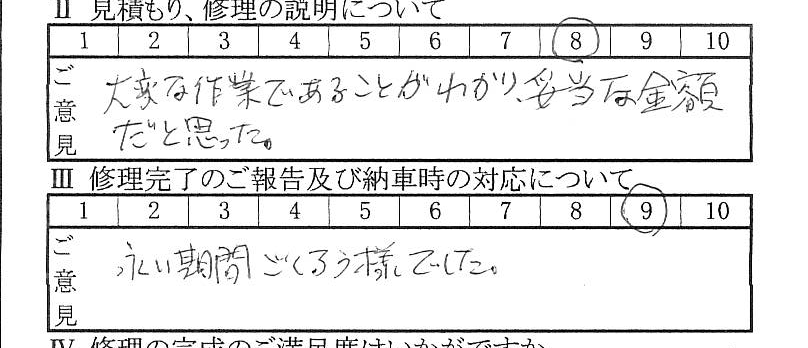 Ⅱ 見積もり、修理の説明について
1 2 3 4 5 6 7 8 9 10
ご意見
大変な作業であることがわかり、妥当な金額
だと思った。
Ⅲ 修理完了のご報告及び納車時の対応について
1 2 3 4 5 6 7 8 9 10
ご意見
永い期間ごくろう様でした。
Ⅳ 修理の完成のご満足度はいかがですか